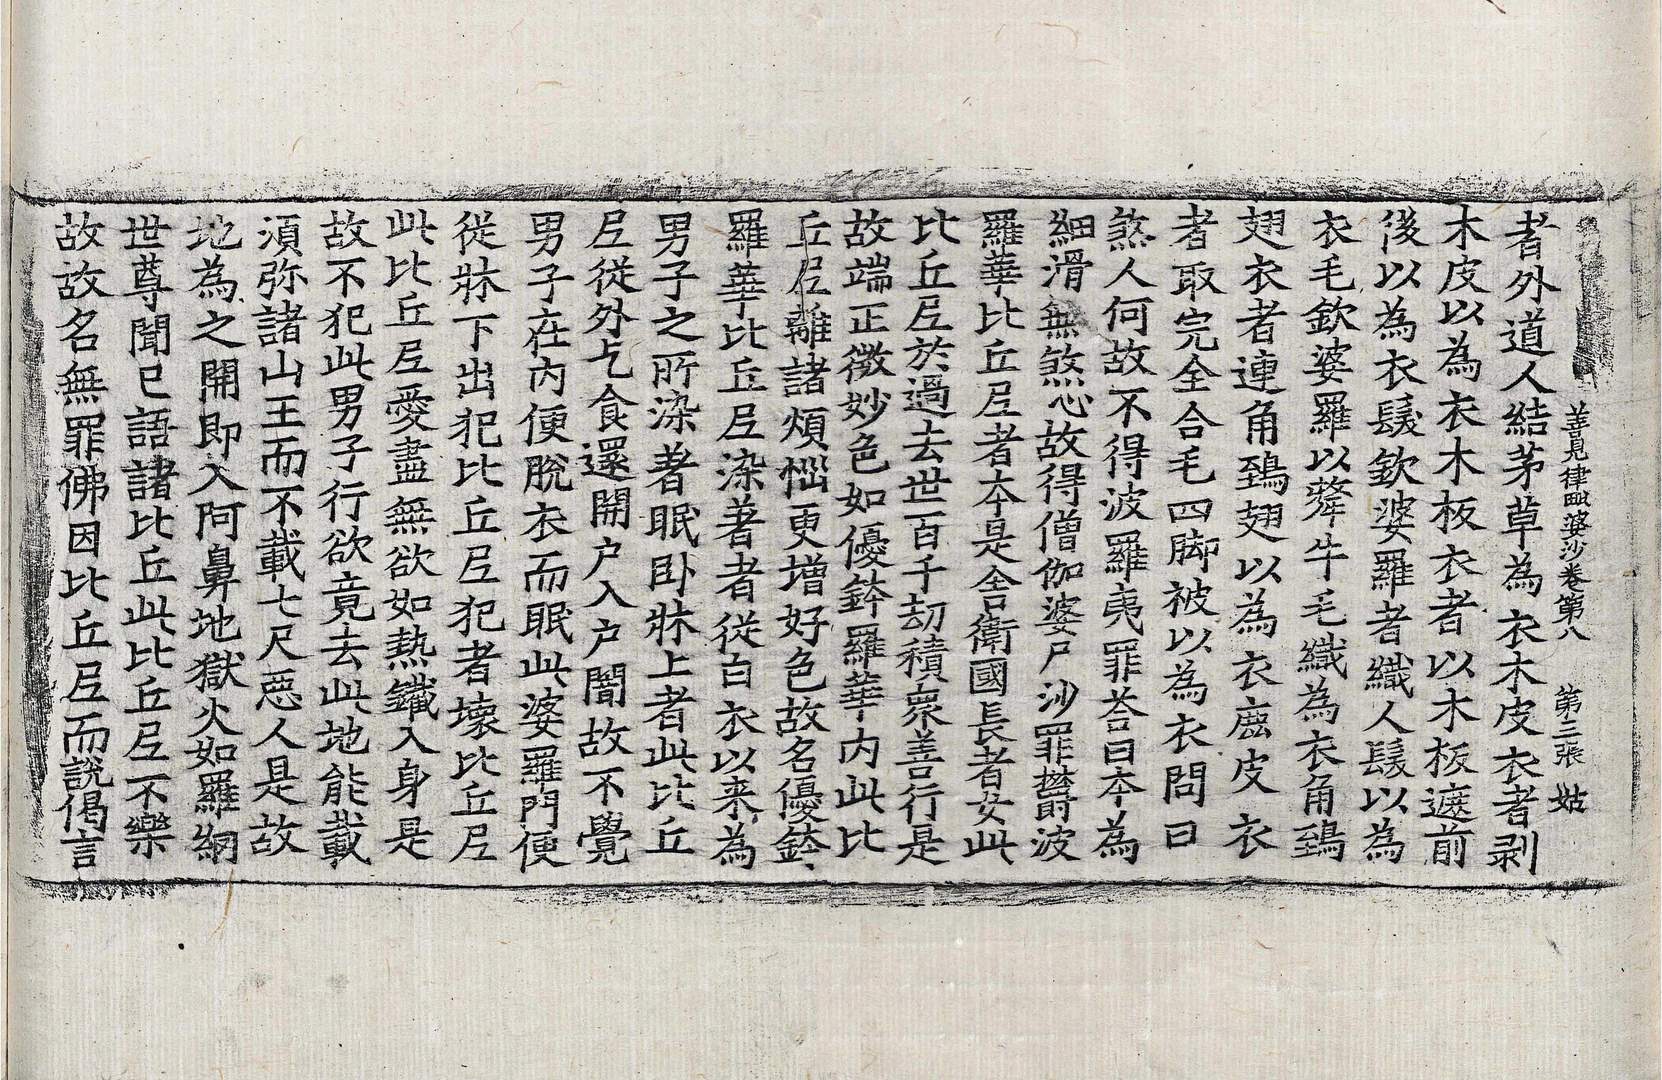 善見律毗婆沙卷第八 第三張 姑
者外道人結茅草為衣木皮衣者剥
木皮以為衣木板衣者以木板遮前
後以為衣髮欽婆羅者織人髮以為
衣毛欽婆羅以犛牛毛織為衣角鵄
翅衣者連角鵄翅以為衣鹿皮衣
者取完全合毛四脚被以為衣問曰
煞人何故不得波羅夷罪荅曰本為
細滑無煞心故得僧伽婆尸沙罪欝波
羅華比丘尼者本是舍衛國長者女此
比丘尼於過去世百千劫積衆善行是
故端正微妙色如優鉢羅華内此比
丘尼離諸煩惱更增好色故名優鉢
羅華比丘尼染著者從白衣以来為
男子之所染著眠卧牀上者此比丘
尼從外乞食還開户入户闇故不覺
男子在内便脫衣而眠此婆羅門便
從牀下出犯比丘尼犯者壞比丘尼
此比丘尼愛盡無欲如熱鐵入身是
故不犯此男子行欲竟去此地能載
湏弥諸山王而不載七尺惡人是故
地為之開即入阿鼻地獄火如羅網
世尊聞已語諸比丘此比丘尼不樂
故故名無罪佛因比丘尼而説偈言